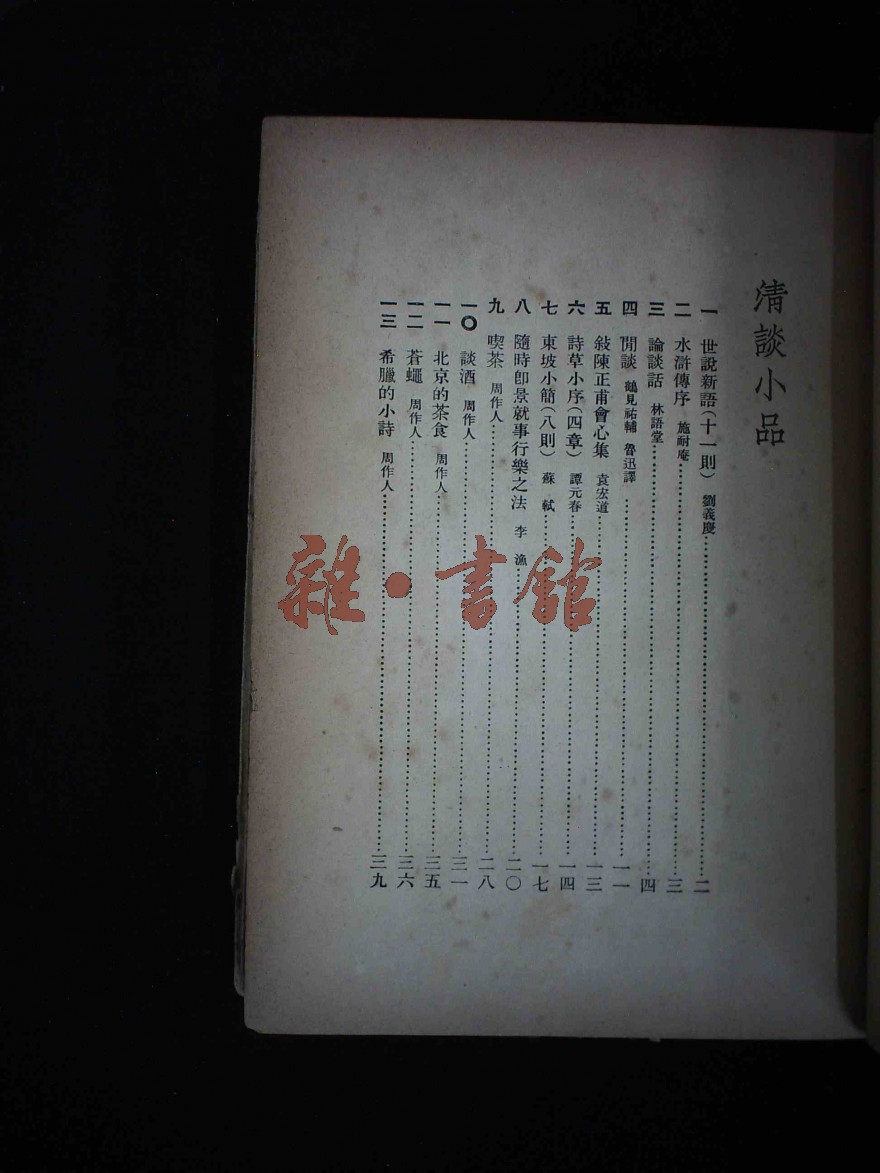 清談小品
一 世說新語(十一則) 劉義慶……二
二 水滸傳序 施耐庵……三
三 論談話 林語堂……四
四 閒談 鶴見祐輔 魯迅譯……一一
五 敍陳正甫會心集 袁宏道……一三
六 詩草小序(四章) 譚元春……一四
七 東坡小簡(八則) 蘇軾……一七
八 隨時卽景就事行樂之法 李漁……二〇
九 喫茶 周作人……二八
一〇 談酒 周作人……三一
一一 北京的茶食 周作人……三五
一二 蒼蠅 周作人……三六
一三 希臘的小詩 周作人……三九
雜·書館